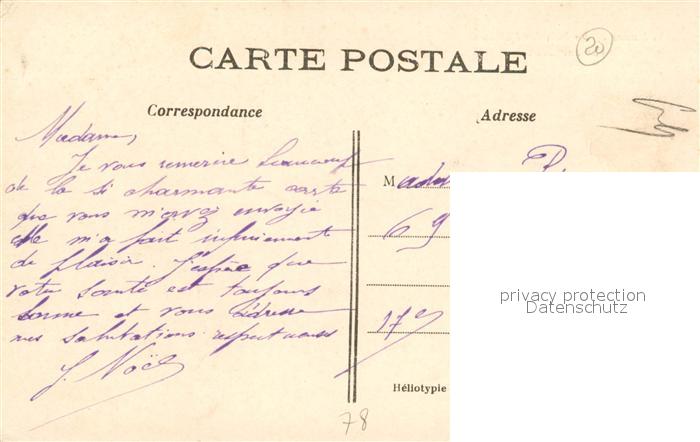 20
CARTE POSTALE
Correspondance
Adresse
Madame,
Je vous remercie beaucoup
de la si charmante carte
que vous m'avez envoyée
elle m'a fait infiniment
de plaisir. J'espère que
votre santé est toujours
bonne et vous adresse
mes salutations respectueuses
J. Noël
M
6 9
17e
Héliotypie
78
privacy protection
Datenschutz